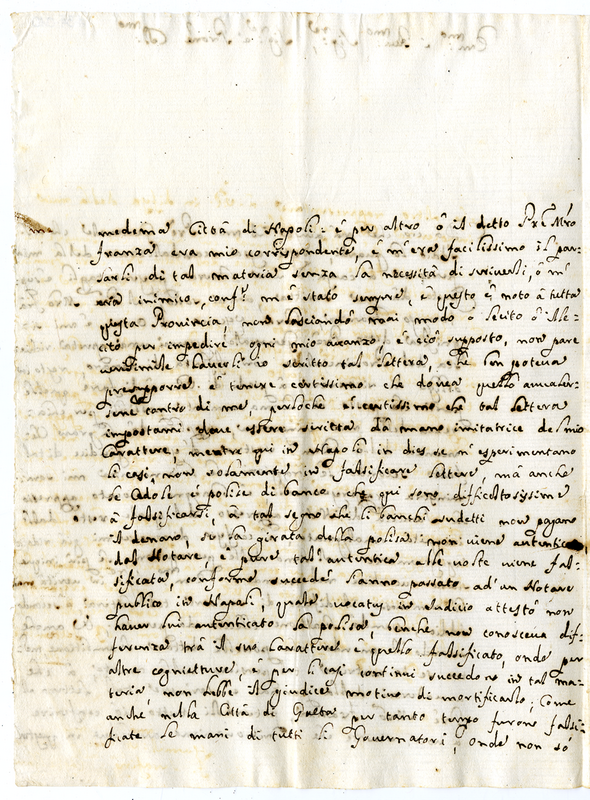 medema Città di Napoli: è per altro ò il detto Prē Mrō
franza era mio corrispondente, è m'era facilissimo il par-
larli di tal materia senza la necessità di scriverli, ò m'
era inimico, conf.e m'è stato sempre, è questo è noto à tutta
questa Provincia, non lasciando mai modo ò licito ò ille-
cito per impedire ogni mio avanzo, è ciò supposto, non pare
verisimile haverli io scritto tal lettera, che ben poteva
presupporre è tenere certissimo che doveva quello avvaler-
sene contro di me, perloche è certissimo che tal lettera
impostami deve essere scritta da mano imitatrice del mio
Carattere, mentre qui in Napoli in dies se n'esperimentano
li casi, non solamente in falsificare lettere, mà anche
le cedole è polise di banco che qui sono difficoltosissime
à falsificarsi, à tal segno che li banchi sudetti non pagano
il denaro, se la girata della polisa non viene autentica
dal Notare, è pure tal'autentica alle volte viene fal-
sificata, conforme succedè l'anno passato ad'un Notare
publico in Napoli, quale vocatus in Iudicio attestò non
haver lui autenticato la polisa, benche non conosceva dif-
ferenza trà il suo Carattere è quello falsificato, onde per
altre cognietture, è per li casi continui succedono in tal ma-
teria, non hebbe il giudice motivo di mortificarlo; Come
anche nella Città di per tanto tempo furono falsi-
ficate le mani di tutti li Governatori, onde non sò